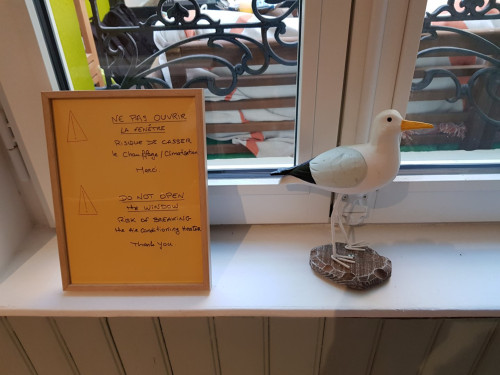 NE PAS OUVRIR
LA FENÊTRE
RISQUE DE CASSER
le Chauffage/Climatisation
Merci
DO NOT OPEN
the WINDOW
RISK OF BREAKING
the AIR CONDITIONING HEATER
Thank you